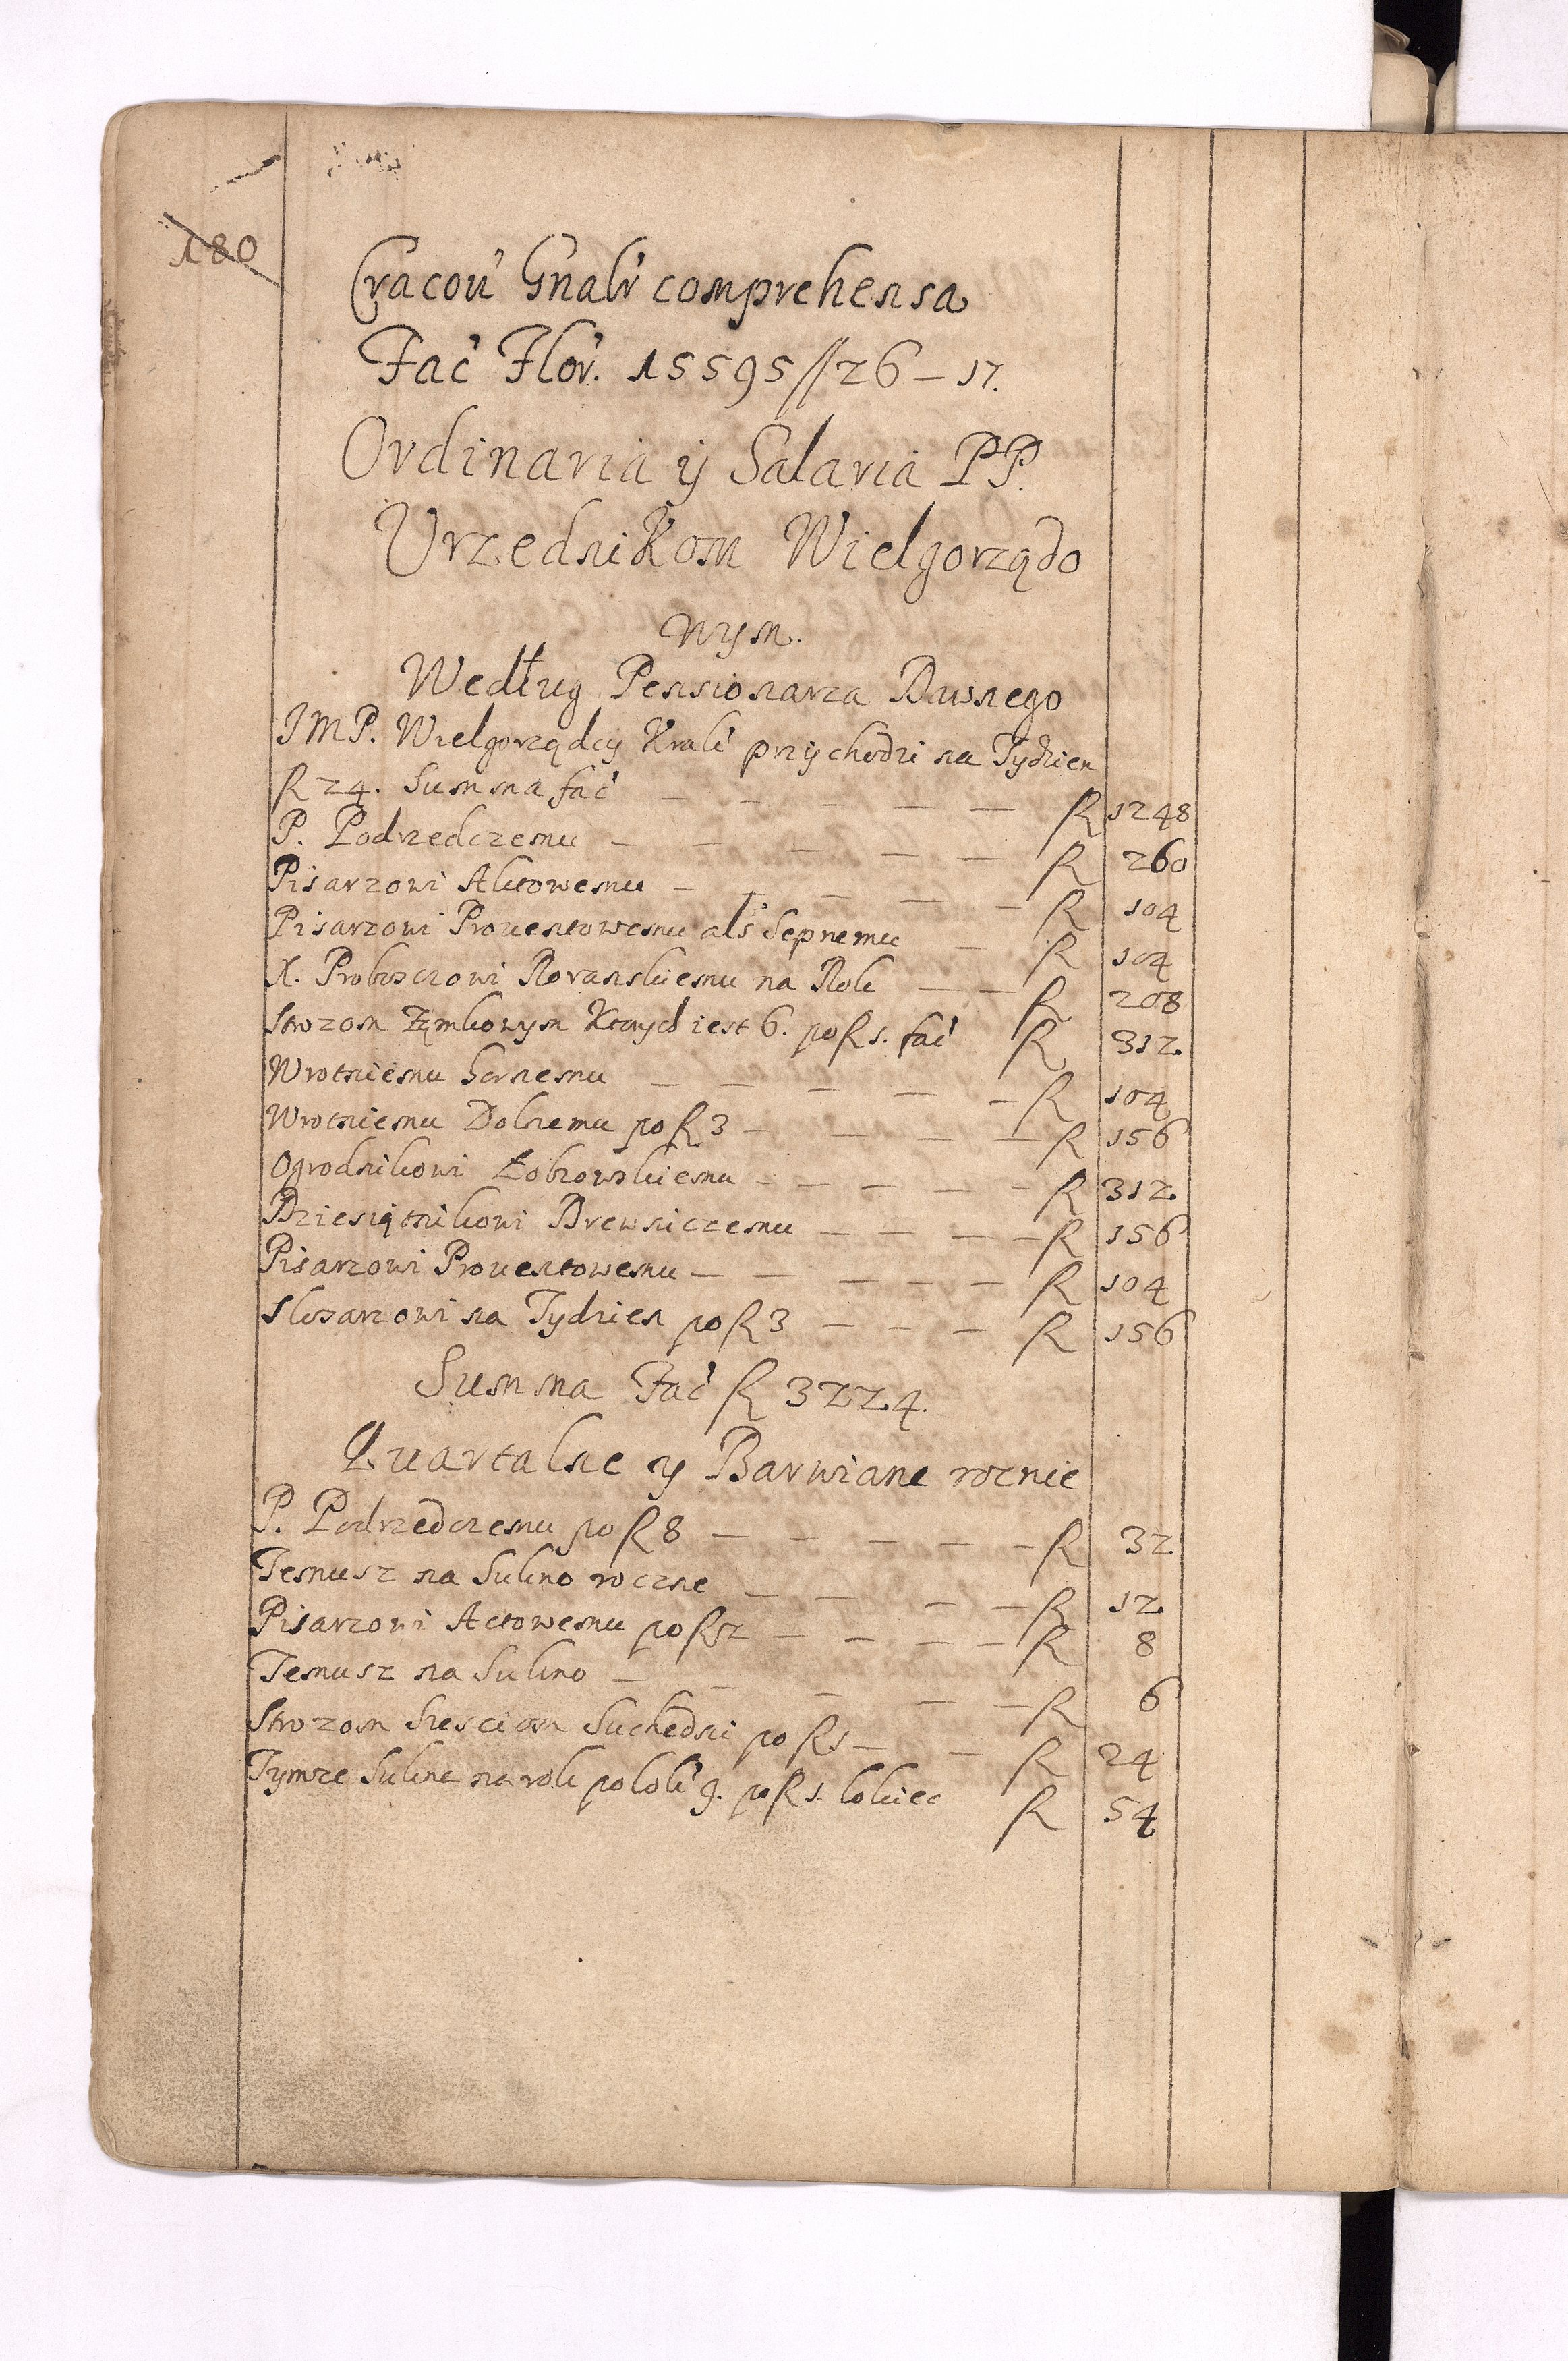 180
Cracou' G'nalr' comprehensa
Fac' Flor'. 15595//26 – 17.
Ordinaria ÿ Salaria PP.
Urzednikom Wielgorządo
wym.
Według Pensionarza Dawnego
JMP. Wielgorządcÿ Krak' przÿchodzi na Tydzien
R 24. Summa fac' — — — — — R 1248
P. Podrzedczemu — — — — — R 260
Pisarzowi Aktowemu — — — — — R 104
Pisarzowi Prouentowemu als' Sepnemu — R 104
X. Proboszczowi Roranskiemu na Rok — — R 208
Strozom Zamkowym Ktorych iest 6. po R 1. fac' R 312
Wrotniemu Gornemu — — — — — R 104
Wrotniemu Dolnemu po R 3 — — — — R 156
Ogrodnikowi Łobzowskiemu — — — — — R 312
Dziesiątnikowi Drewniczemu — — — — R 156
Pisarzowi Prouentowemu — — — — — R 104
Slosarzowi na Tydzien po R 3 — — — R 156
Summa Fac' R 3224.
Quartalne y Barwiane rocznie
P. Podrzedczemu po R 8 — — — — — R 32
Temusz na Sukno roczne — — — — R 12
Pisarzowi Actowemu po R 2 — — — — R 8
Temusz na Sukno — — — — — R 6
Strozom Szesciom Suchedni po R 1 — — R 24
Tymze Sukna na rok po lok' 9. po R 1. lokiec R 54